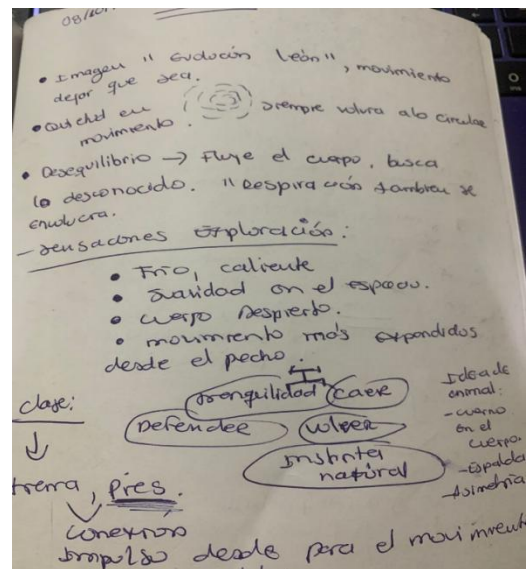 08/10/
• Imagen " Evolución león", movimiento
dejar que sea.
• Quietud en movimiento. siempre volvra a lo circular
• Desequilibrio → Fluye el cuerpo, busca
lo desconocido. "Respiración tambien se
envolucra.
- sensaciones Exploración:
• Frio, caliente
• suavidad en el espacio.
• cuerpo Despierto.
• movimiento más expandidos
desde el pecho.
tranquilidad caer
Defender volver
Instinto
natural
Idea de
animal:
- cuerno
en el
cuerpo.
- Espalda
- Asimetria
clase:
tierra, pies.
conexión
Impulso desde para el movimiento